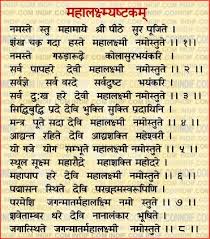 महालक्ष्म्यष्टकम्
नमस्ते स्तु महामाये श्री पीठे सुर पूजिते ।
शंख चक्र गदा हस्ते महालक्ष्मी नमोस्तुते ।। १ ।।
नमस्ते गरुडारूढ़े कोलासुरभयंकरि ।
सर्व पापहरे देवी महालक्ष्मी नमोस्तुते ।। २ ।।
सर्वज्ञे सर्व वरदे सर्वदुष्ट भयंकरि ।
सर्व दुःख हरे देवी महालक्ष्मी नमोस्तुते ।। ३ ।।
सिद्धिबुद्धि प्रदे देवि भुक्ति मुक्ति प्रदायिनि ।
मन्त्र पूते सदा देवि महालक्ष्मी नमोस्तुते ।। ४ ।।
आद्यन्त रहिते देवि आद्यशक्ति महेश्वरी ।
योगजे योग सम्भूते महालक्ष्मी नमोस्तुते ।। ५ ।।
स्थूल सूक्ष्म महारौद्रे महाशक्ति महोदरे ।
महापाप हरे देवि महालक्ष्मी नमोस्तुते ।। ६ ।।
पद्मासन स्थिते देवि परब्रह्मस्वरूपिणि ।
परमेशि जगन्मातर्महालक्ष्मि नमो स्तुते ।। ७ ।।
श्वेताम्बर धरे देवि नानालंकार भूषिते ।
जगत्स्थिते जगन्मातर्महालक्ष्मी नमोस्तुते ।। ८ ।।